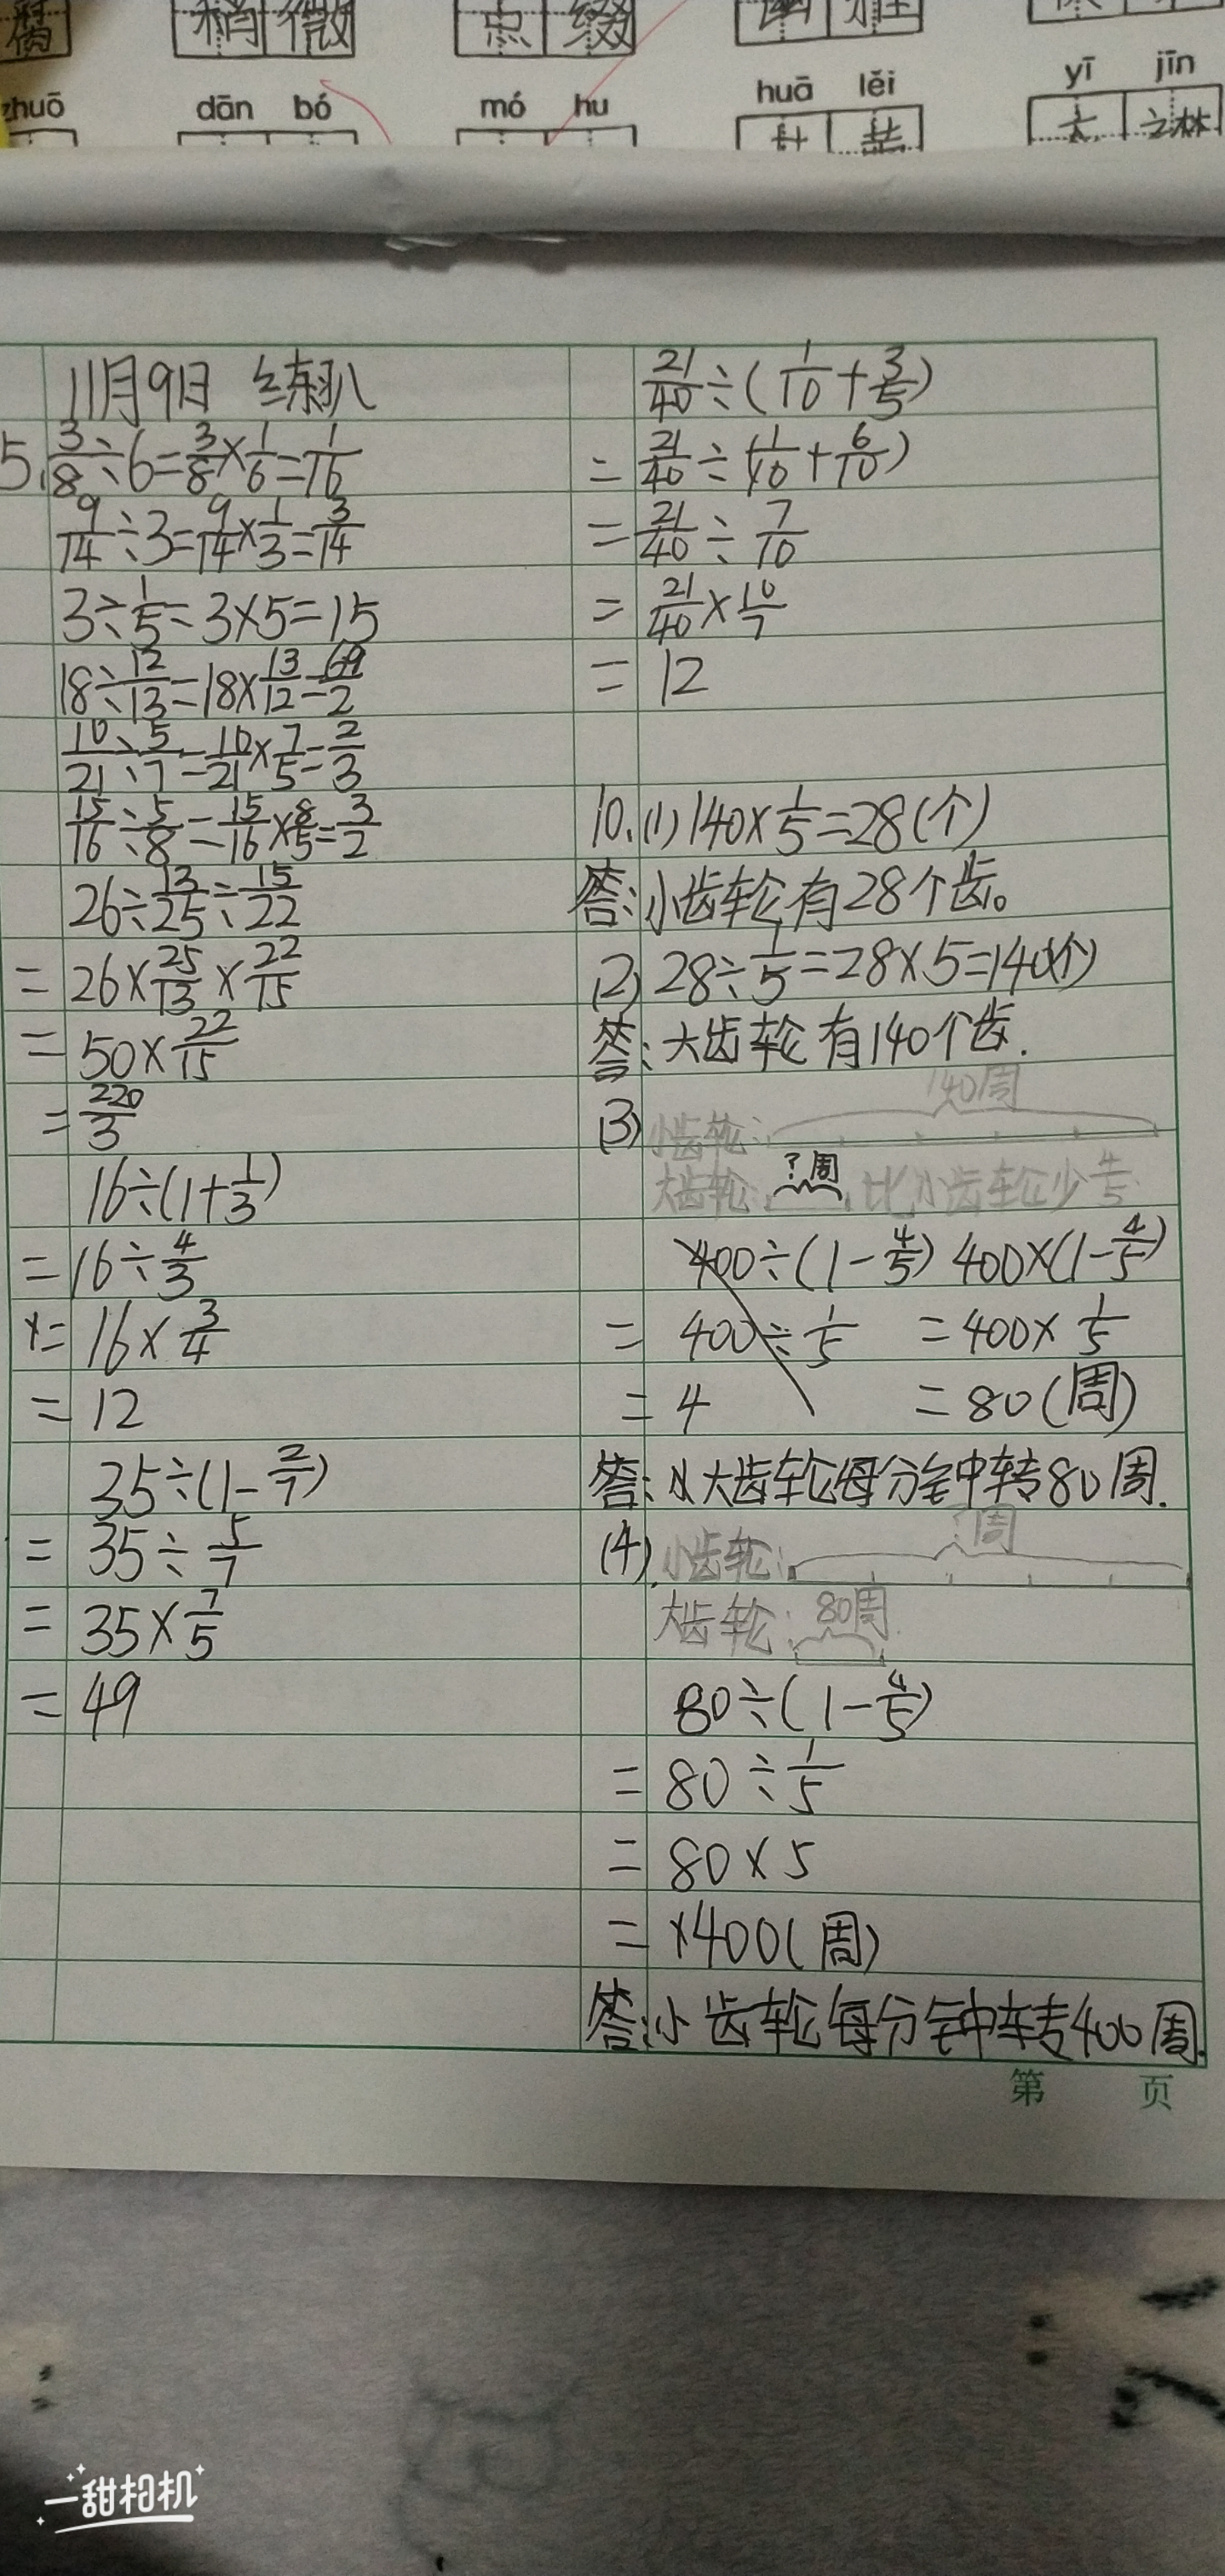 腐 稍微 点缀
zhuō dān bó mó hu huā lěi yī jīn
11月9日 练习八
5. 3/8÷6=3/8×1/6=1/16
9/14÷3=9/14×1/3=3/14
3÷1/5=3×5=15
18÷12/13=18×13/12=69/2
10/21÷5/7=10/21×7/5=2/3
15/16÷5/8=15/16×8/5=3/2
26÷13/25÷15/22
=26×25/13×22/15
=50×22/15
=220/3
16÷(1+1/3)
=16÷4/3
=16×3/4
=12
35÷(1-2/7)
=35÷5/7
=35×7/5
=49
21/40÷(1/10+3/5)
=21/40÷(1/10+6/10)
=21/40÷7/10
=21/40×10/7
=12
10.(1)140×1/5=28(个)
答:小齿轮有28个齿。
(2)28÷1/5=28×5=140(个)
答:大齿轮有140个齿.
140周
(3)小齿轮:
大齿轮: ?周 比小齿轮少4/5
400÷(1-4/5) 400×(1-4/5)
=400÷1/5 =400×1/5
=4 =80(周)
答:大齿轮每分钟转80周.
?周
(4)小齿轮:
大齿轮:80周
80÷(1-4/5)
=80÷1/5
=80×5
=400(周)
答:小齿轮每分钟转400周.
第 页
一甜相机